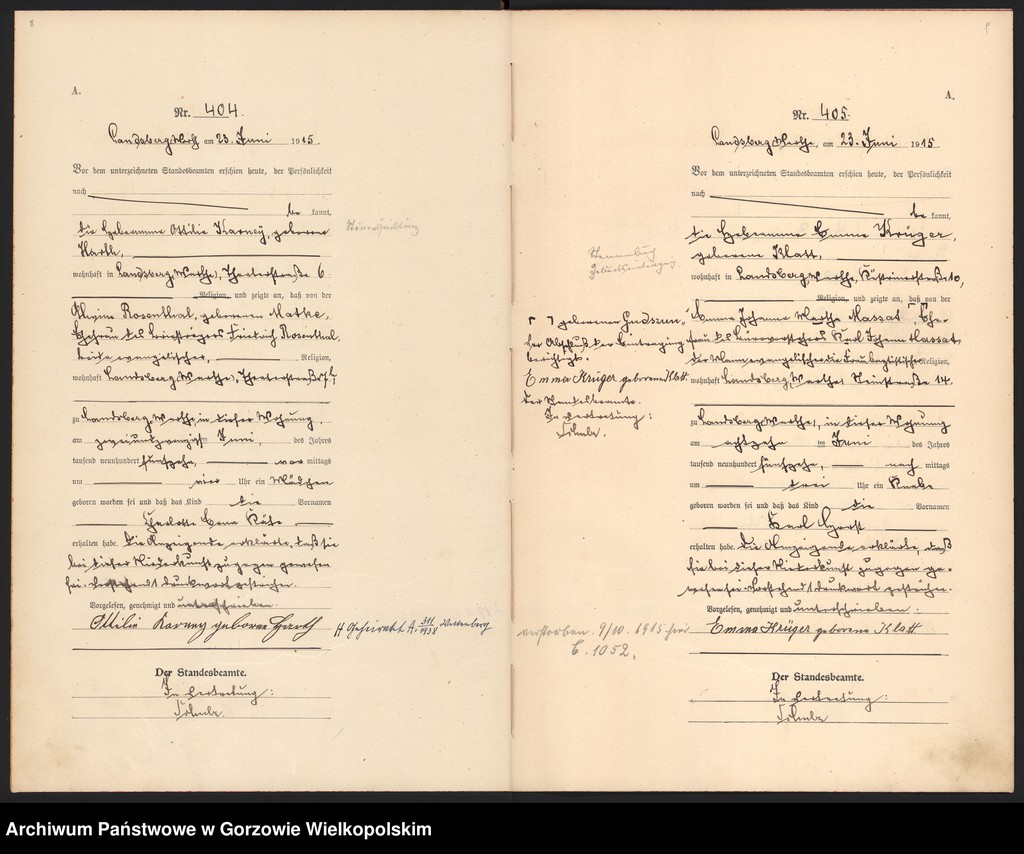 8
A.
Nr. 404.
Landsberg Warthe am 23. Juni 1915.
Vor dem unterzeichneten Standesbeamten erschien heute, der Persönlichkeit
nach
be kannt,
die Hebamme Ottilie Karney, geborene
Harth,
wohnhaft in Landsberg, Warthe, Theaterstraße 6
Religion, und zeigte an, daß von der
Rosenthal, geborenen Matke,
Ehefrau des Friedrich Rosenthal,
beide evangelischer, Religion,
wohnhaft Landsberg, Warthe, Theaterstraße
zu Landsberg, Warthe, in dieser Wohnung
am zweiundzwanzigsten Juni, des Jahres
tausend neunhundert fünfzehn, vor mittags
um vier Uhr ein Mädchen
geboren worden sei und daß das Kind die Vornamen
Charlotte Erna Käte
erhalten habe. Die Anzeigende erklärte, daß sie
bei dieser Niederkunft zugegen gewesen
sei. Vorstehend 1 Druckwort gestrichen.
Vorgelesen, genehmigt und unterschrieben.
Ottilie Karney geborene Harth
Der Standesbeamte.
In Vertretung:
Geheiratet A. 311/1938 Wittenberg
A.
Nr. 405.
Landsberg Warthe, am 23. Juni 1915
Vor dem unterzeichneten Standesbeamten erschien heute, der Persönlichkeit
nach
be kannt,
die Hebamme Emma Krüger,
geborene Klatt,
wohnhaft in Landsberg, Warthe, Küstrinerstraße 10,
Religion, und zeigte an, daß von der
Emma Johanna Martha Massat, Ehe-
frau des Karl Johann Massat,
der Mann evangelischer die Frau baptistischer Religion,
wohnhaft Landsberg, Warthe, Steinstraße 14.
zu Landsberg, Warthe, in dieser Wohnung
am achtzehnten Juni des Jahres
tausend neunhundert fünfzehn, nach mittags
um drei Uhr ein Knabe
geboren worden sei und daß das Kind die Vornamen
Karl Horst
erhalten habe. Die Anzeigende erklärte, daß
sie bei dieser Niederkunft zugegen ge-
wesen sei. Vorstehend 1 Druckwort gestrichen.
Vorgelesen, genehmigt und unterschrieben.
Emma Krüger geborene Klatt
Der Standesbeamte.
In Vertretung:
geborenen
Abschluß der Eintragung
berichtigt.
Emma Krüger geborene Klatt.
Der Standesbeamte.
In Vertretung:
verstorben 9/10. 1915 hier
C. 1052.
Archiwum Państwowe w Gorzowie Wielkopolskim